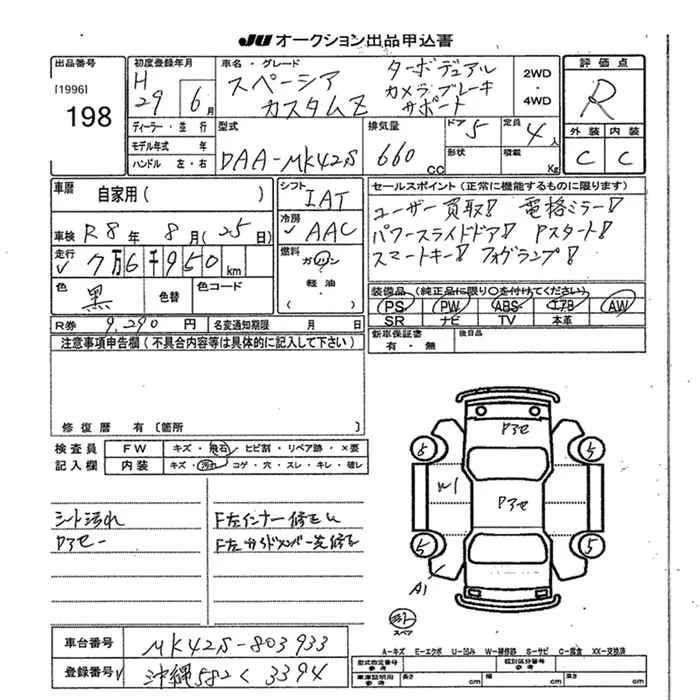 JU オークション出品申込書
出品番号
[1996]
198
初度登録年月
H
29年 6月
ディーラー・並行
モデル年式 年
ハンドル 左・右
車名・グレード
スペーシア ターボデュアル
カスタムZ カメラブレーキ
サポート
2WD
・
4WD
型式
DAA-MK42S
排気量
660 CC
ドア 5
形状
定員 4人
積載 Kg
評価点
R
外装 内装
C C
車歴 自家用( )
車検 R8年 8月(25日)
走行 7万6千950km
色 黒
色替
色コード
R券 9,290円 名変通知期限 月 日
シフト IAT
冷房 AAC
燃料 ガソリン
・
軽油
( )
セールスポイント(正常に機能するものに限ります)
ユーザー買取!! 電格ミラー!!
パワースライドドア!! Pスタート!!
スマートキー!! フォグランプ!!
装備品(純正品に限り○を付けてください)
PS PW ABS エアB AW
SR ナビ TV 本革
新車保証書
有・無
後日品
注意事項申告欄(不具合内容等は具体的に記入して下さい)
修復歴 有〔箇所 〕
検査員
記入欄
FW キズ・飛石・ヒビ割・リペア跡・×要
内装 キズ・汚れ・コゲ・穴・スレ・キレ・破レ
シート汚れ
Pアセー
F左インナー修正し
F左サイドメンバー先修正
Pアセ
Pアセ
W1
A1
5
5
5
スペア
車台番号 MK42S-803933
登録番号 沖縄582く3394
A-キズ E-エクボ U-凹み W-補修跡 S-サビ C-腐食 XX-交換済
型式指定番号
参考
類別区分番号
参考
車庫証明用
参考
長さ cm
幅 cm
高さ cm